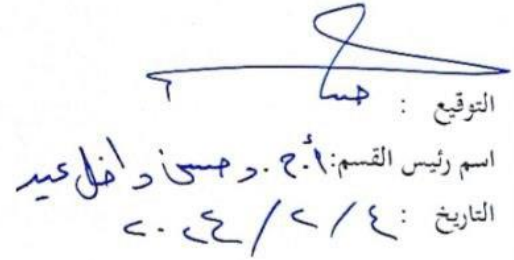 التوقيع :
اسم رئيس القسم: أ.م.د حسن داخل عيد
التاريخ : ٤ / ٢ / ٢٠٢٤